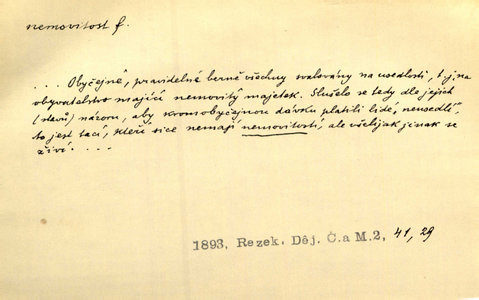 nemovitost f.
.... Obyčejné, pravidelné berně všechny svalovány na usedlosti, t.j. na
obyvatelstvo mající nemovitý majetek. Slušelo se tedy dle jejich
(stavů) názoru, aby kromobyčejnou dávku platili lidé „neusedlí“,
to jest tací, kteří sice nemají nemovitostí, ale všelijak jinak se
živí . . . .
1893, Rezek. Děj. Č. a M. 2, 41, 29